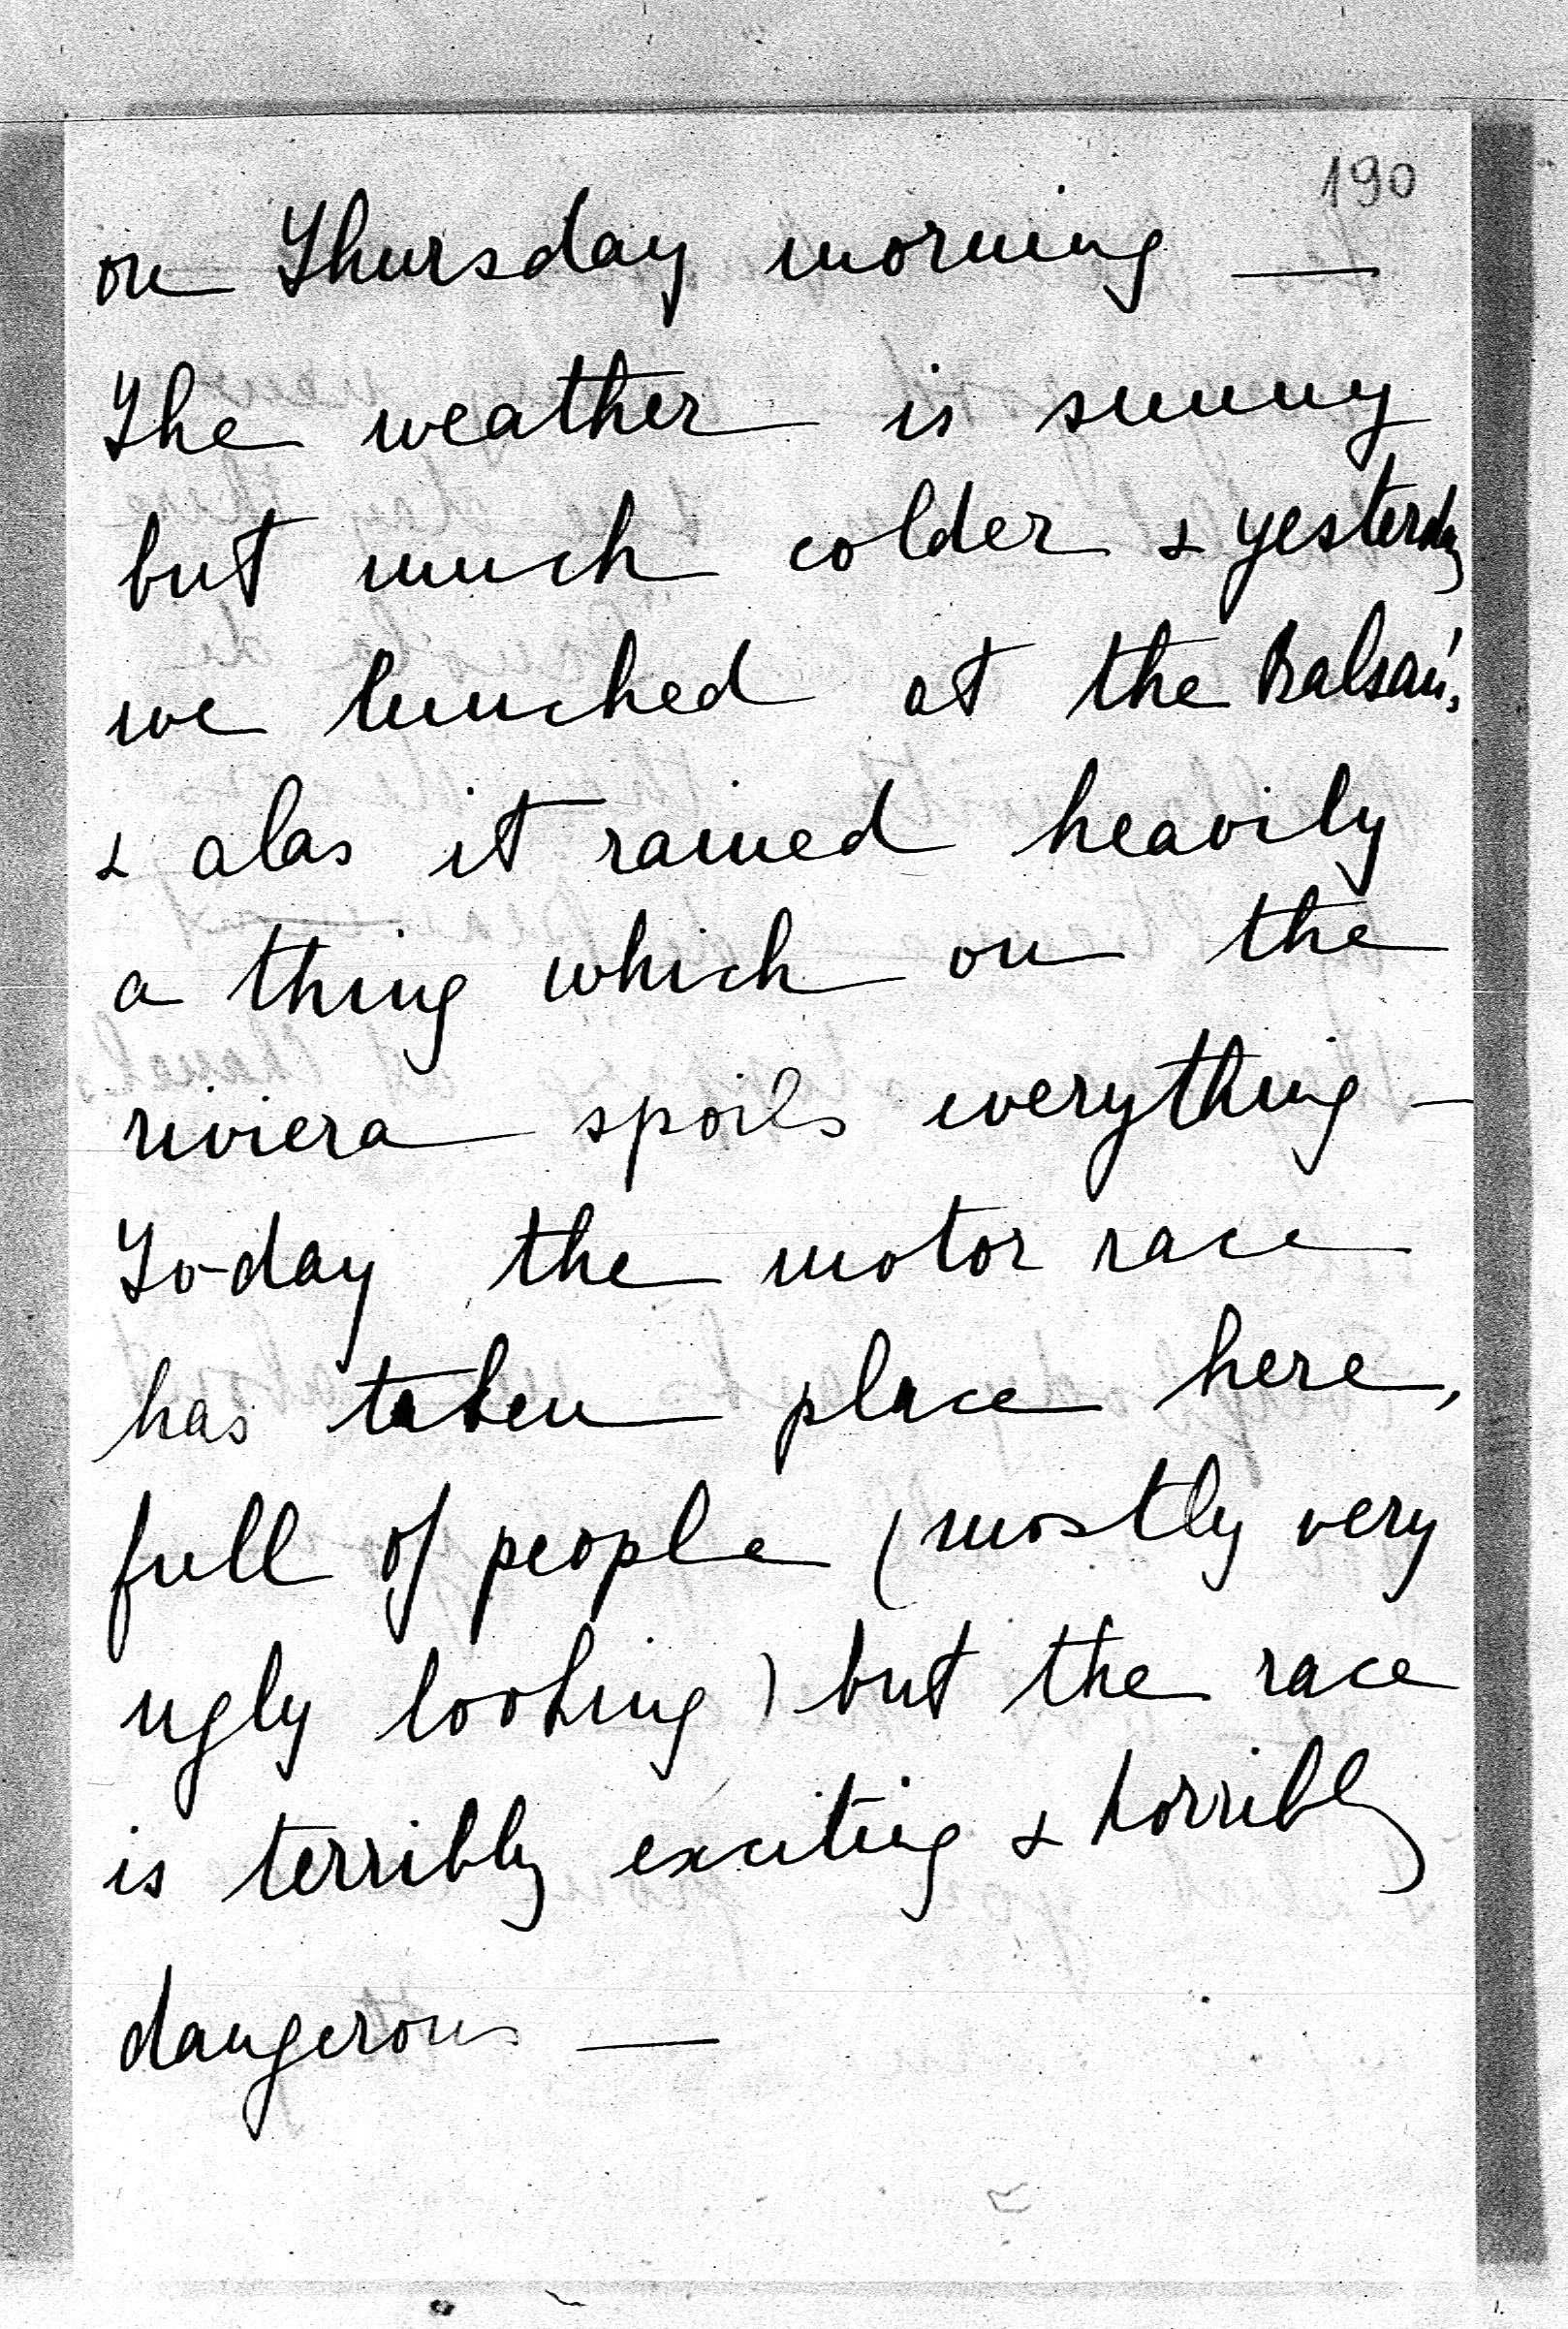 190
on Thursday morning —
The weather is sunny
but much colder & yesterday
we lunched at the Balsan's
& alas it rained heavily
a thing which on the
riviera spoils everything —
To-day the motor race
has taken place here,
full of people (mostly very
ugly looking) but the race
is terribly exciting & horribly
dangerous —